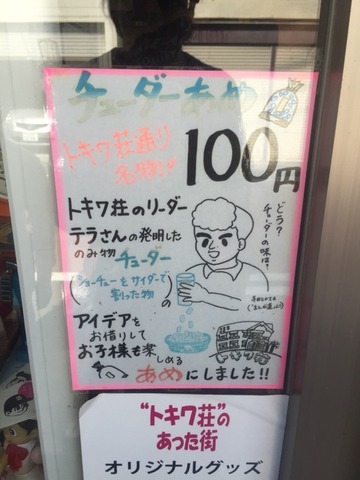 チューダーあめ
トキワ荘通り
名物!!
100円
トキワ荘のリーダー
テラさんの発明した
のみ物 チューダー
(ショーチューをサイダーで
割った物)の
アイデアを
お借りして
お子様も楽しめる
あめにしました!!
どう?
チューダーの味は?
“トキワ荘”の
あった街
オリジナルグッズ